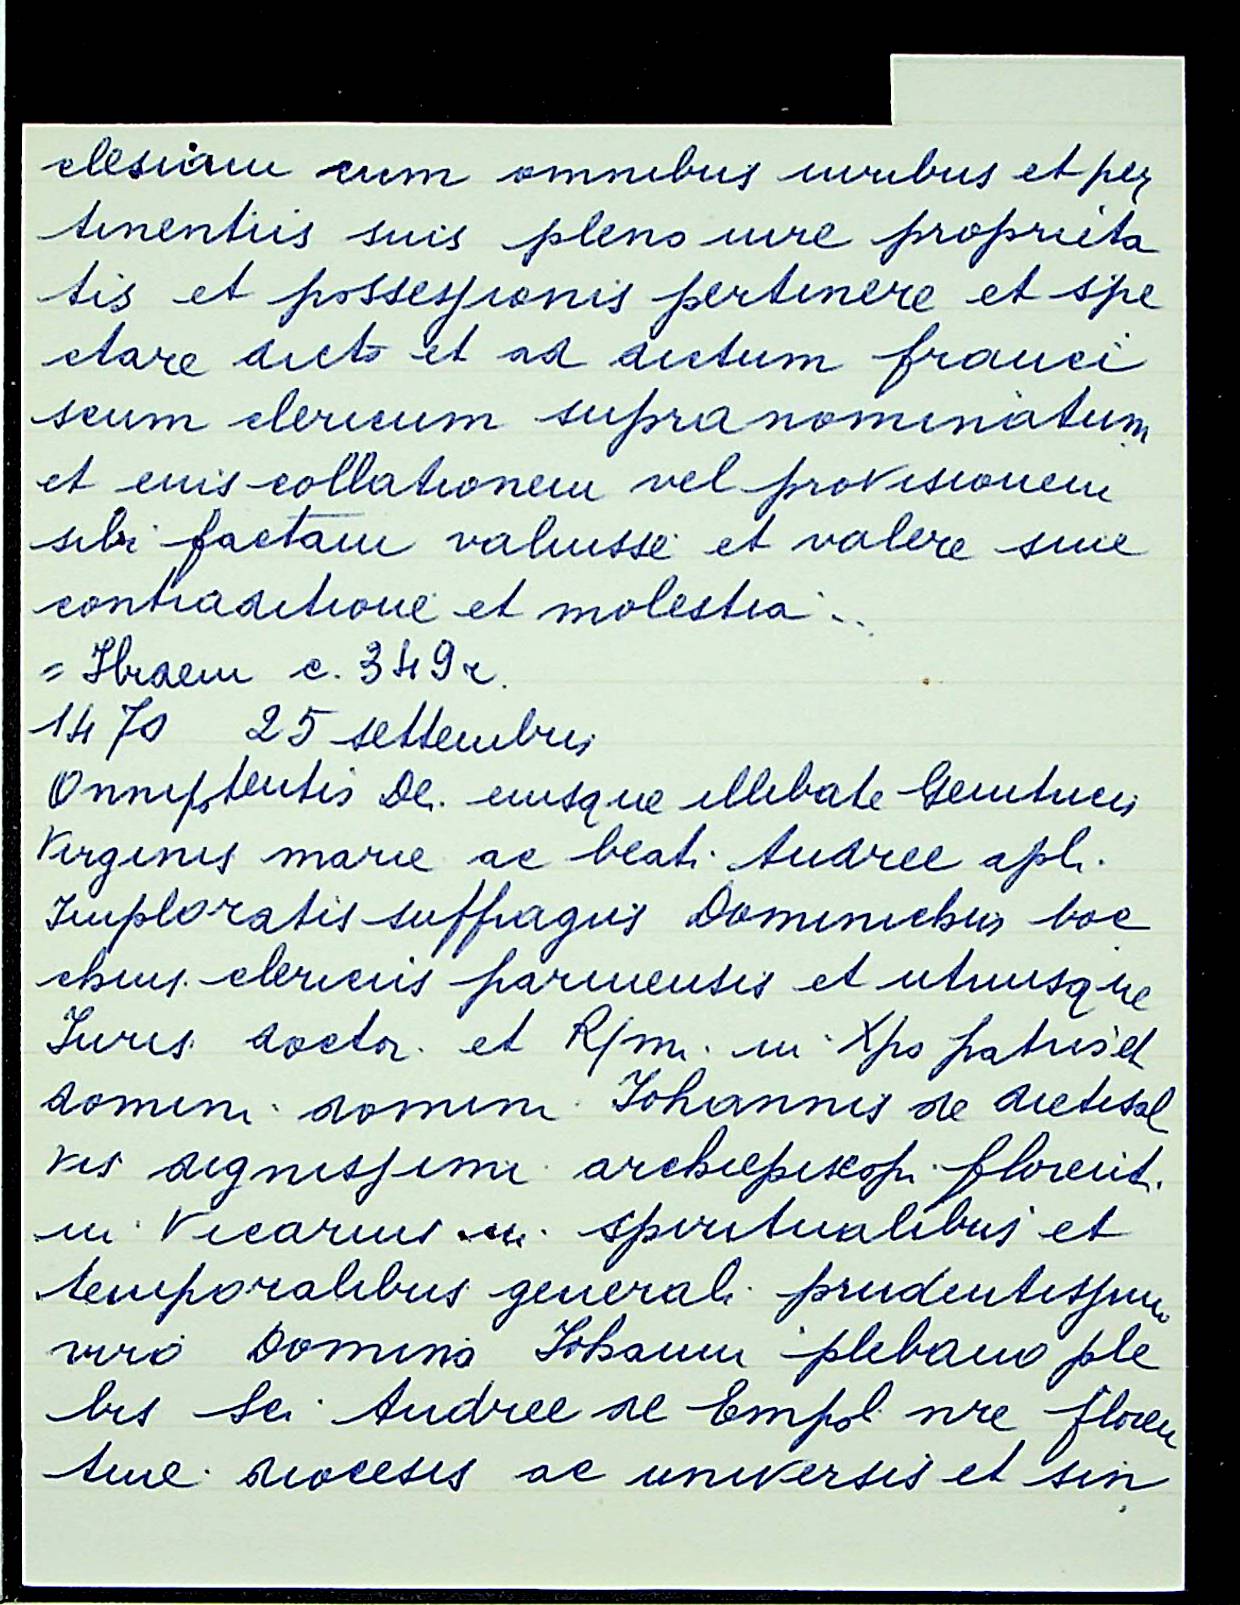 clesiam cum omnibus iuribus et per
tinentiis suis pleno iure proprieta
tis et possessionis pertinere et spe
ctare dicto et ad dictum franci
scum clericum supra nominatum
et eius collationem vel provisionem
sibi factam valuisse et valere sine
contraditione et molestia...
= Ibidem c. 349 r.
1470 25 settembris
Onnipotentis Dei eiusque illibate Genitricis
Virginis marie ac beati Andree apli.
Imploratis suffragiis Dominichus boc
chius clericus parmensis et utriusque
Iuris doctor et R/mi in Xpo patris et
domini domini Iohannis de dietisal
vis dignissimi archiepiscopi florent.
in Vicarius in spiritualibus et
temporalibus generali prudentissimo
viro Domino Iohanni plebano ple
bis Sci Andree de Empol nre floren
tine diocesis ac universis et sin